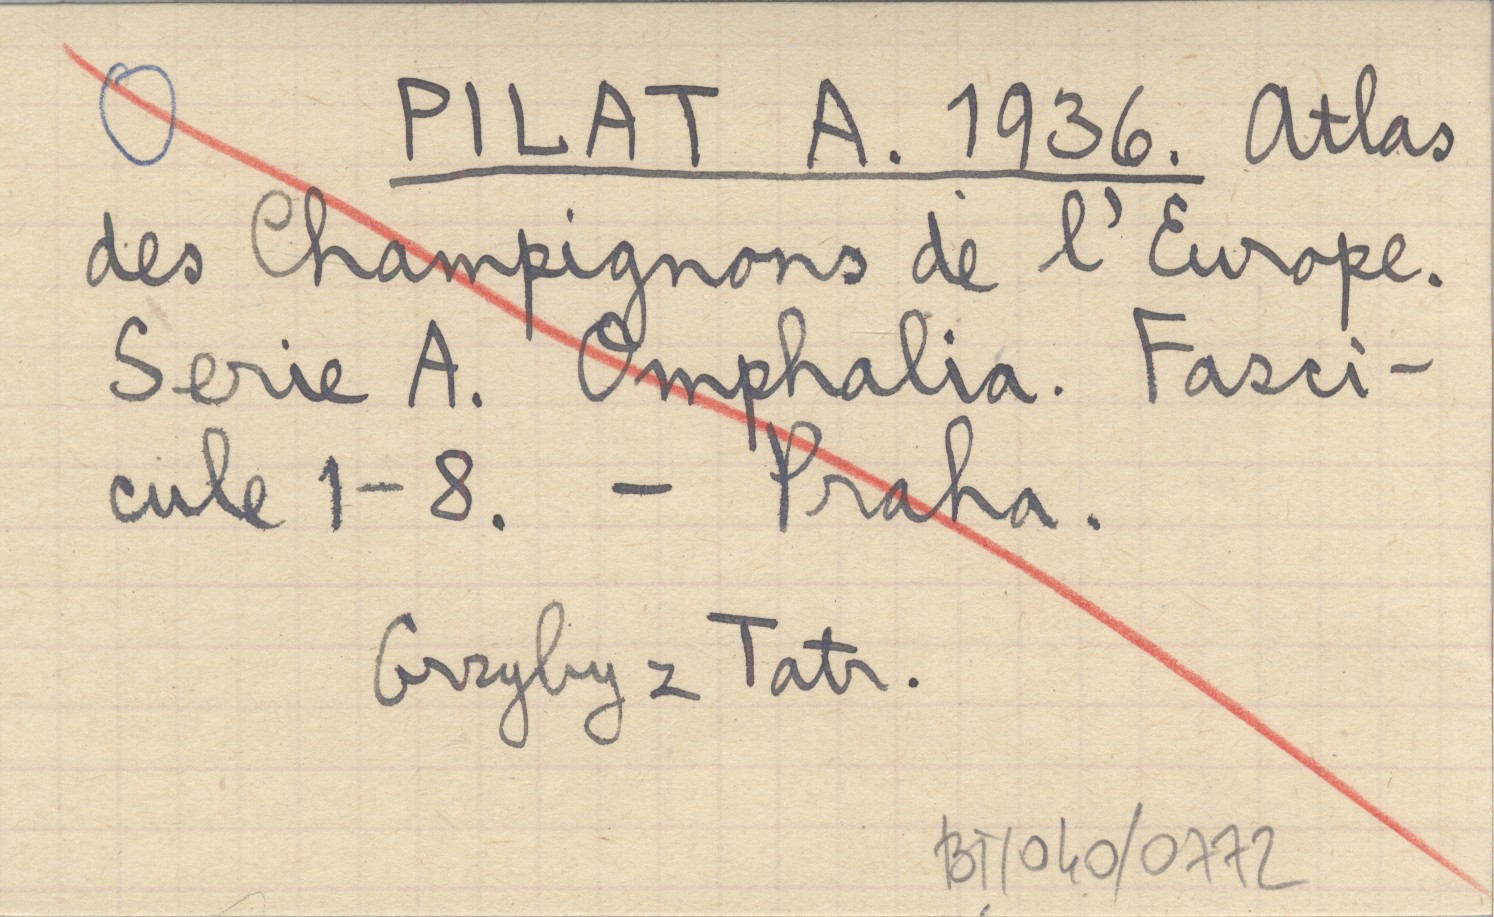 O PILAT A. 1936. Atlas
des Champignons de l'Europe.
Serie A. Omphalia. Fasci-
cule 1-8. - Praha.
Grzyby z Tatr.
BT/040/0772